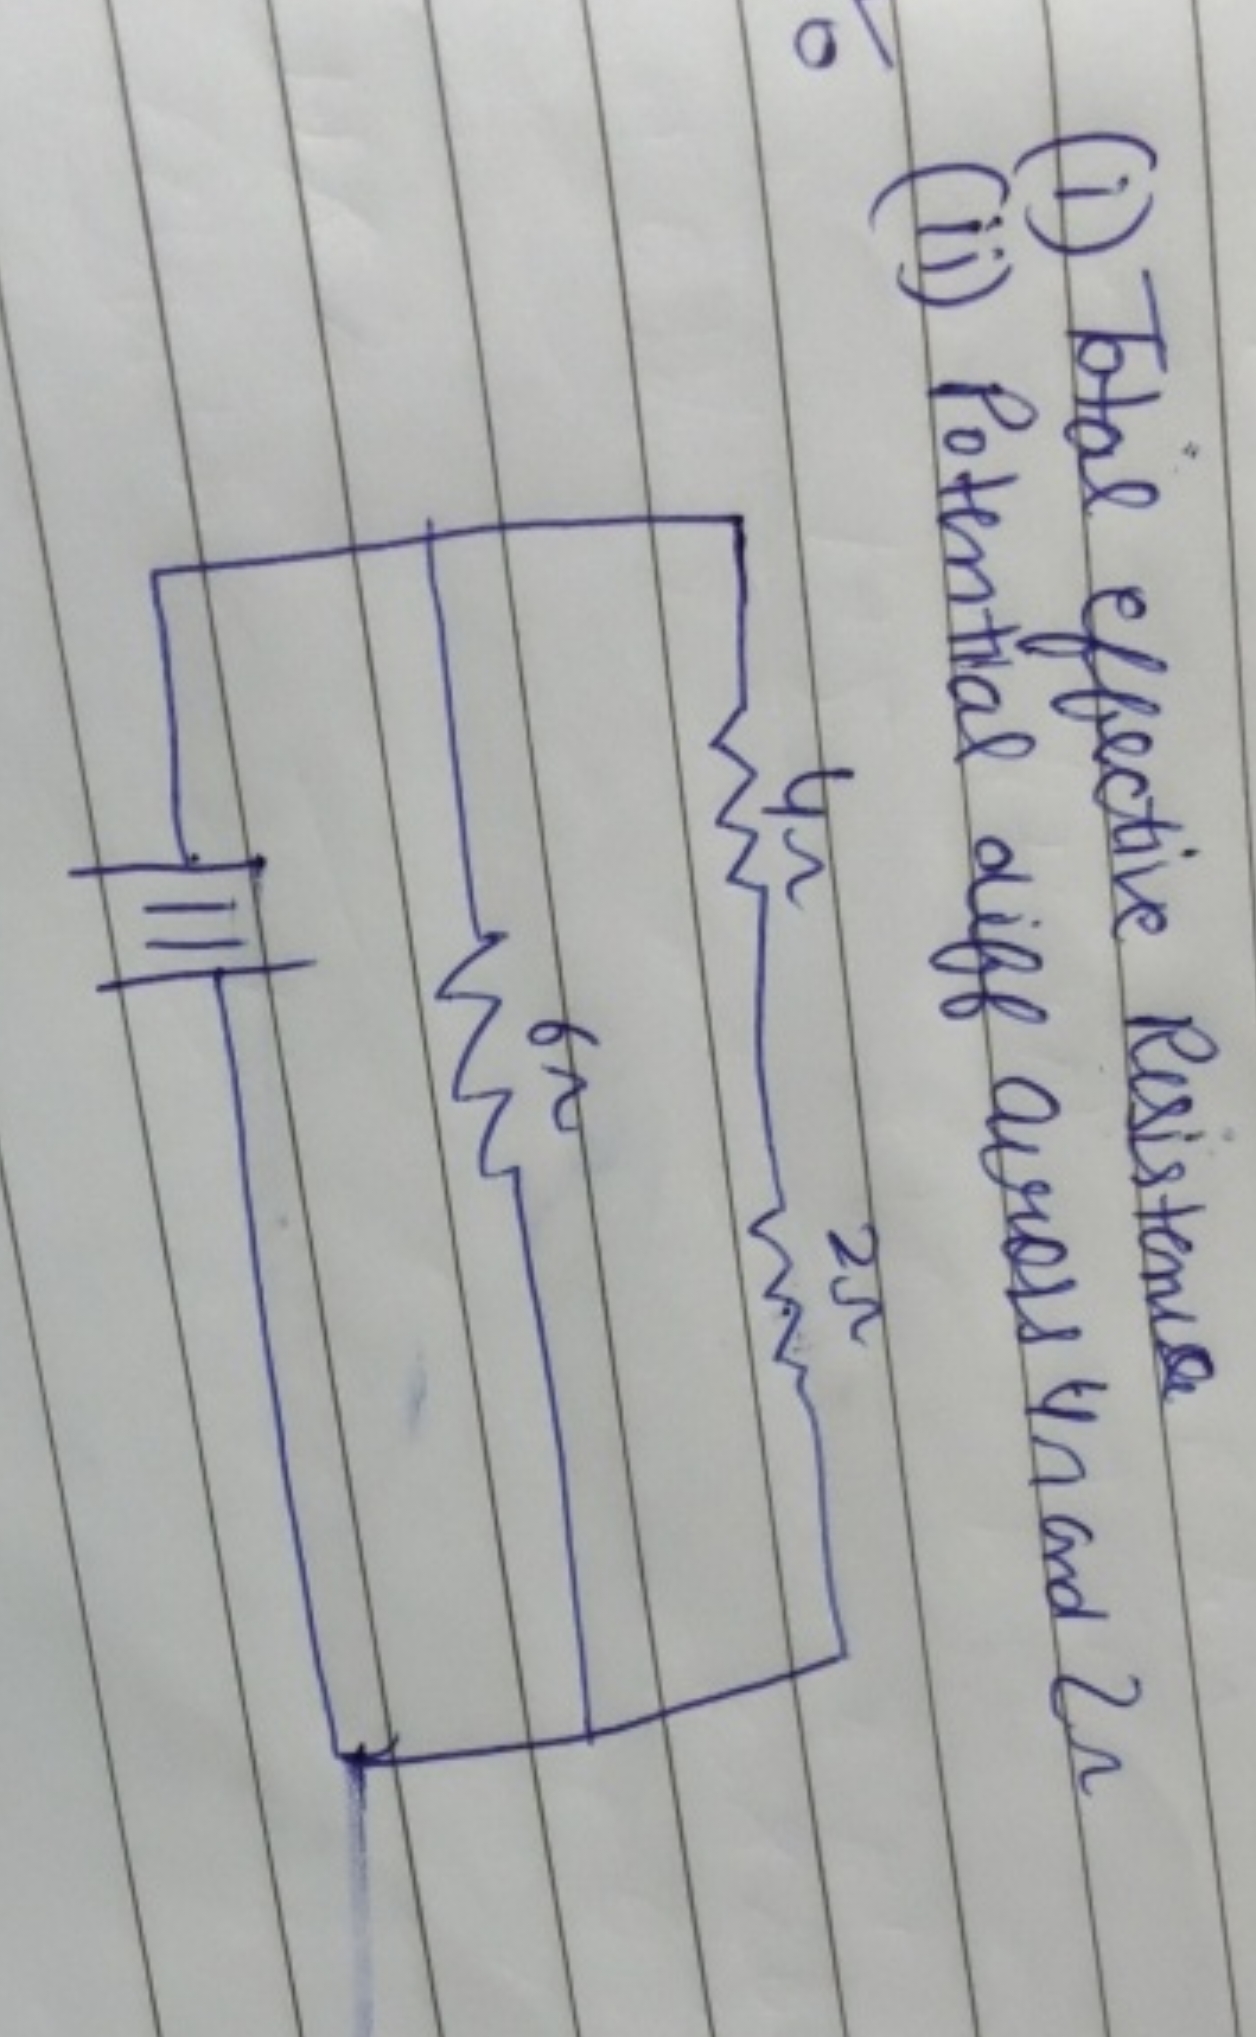 (i) Total effective Resistense
(ii) Potential diff across 4Ω and 2Ω
4Ω
2Ω
6Ω